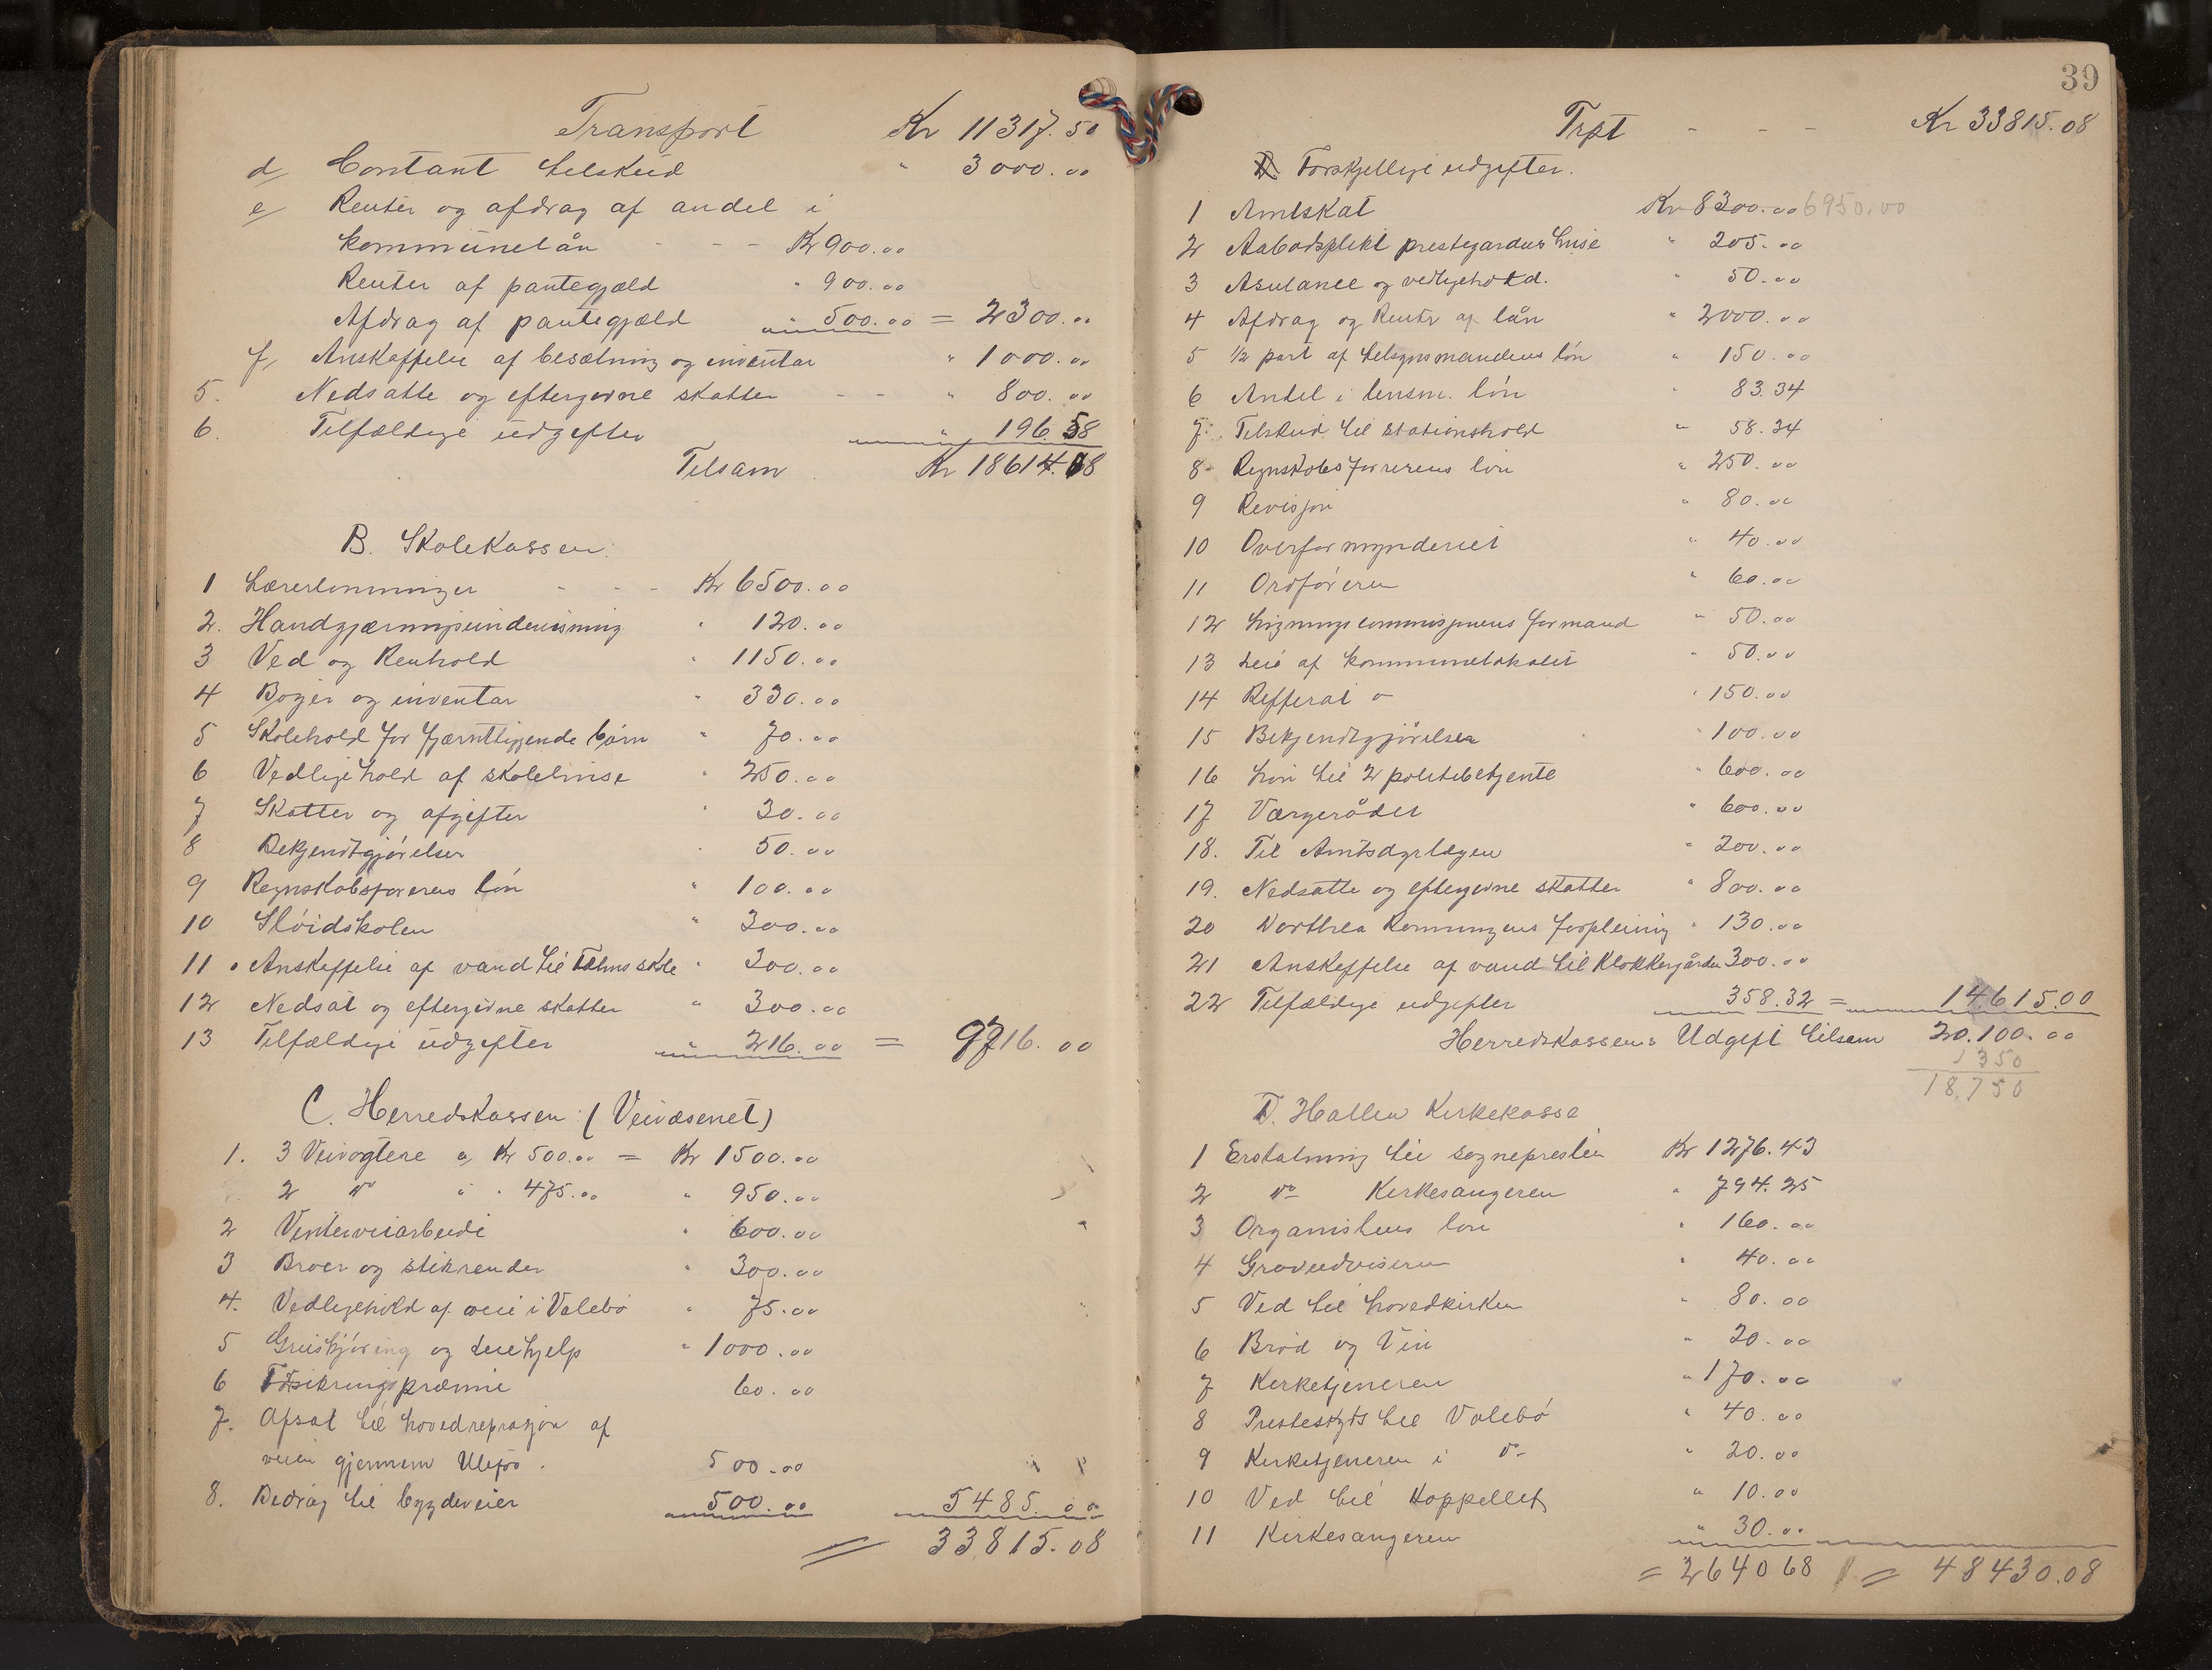 Transport Kr 11317.50
d/ Constant tilskud " 3000.00
e/ Renter og afdrag af andel i
kommunelån - - - Kr 900.00
Renter af pantegjæld " 900.00
Afdrag af pantegjæld " 500.00 = 2300.00
f, Anskaffelse af besætning og inventar " 1000.00
5. Nedsatte og eftergivne skatter - - " 800.00
6. Tilfældige udgifter " 196.58
Tilsam Kr 18614.08
B. Skolekassen.
1 Lærerlønninger - - - Kr 6500.00
2. Handgjærningsundervisning " 120.00
3 Ved og Renhold " 1150.00
4 Bøger og inventar " 330.00
5 Skolehold for fjærntliggende børn " 70.00
6 Vedligehold af skolehuse " 250.00
7 Skatter og afgifter " 30.00
8 Bekjendtgjørelser " 50.00
9 Regnskabsførerens løn " 100.00
10 Sløidskolen " 300.00
11 Anskaffelse af vand til skole " 300.00
12 Nedsat og eftergivne skatter " 300.00
13 Tilfældige udgifter " 216.00 = 9716.00
C. Herredskassen (Veivæsenet)
1. 3 Veivogtere a Kr 500.00 = Kr 1500.00
2 do " " 475.00 " 950.00
2 Vinterveiarbeide " 600.00
3 Broer og stikrender " 300.00
4. Vedligehold af veie i Valebø " 75.00
5 Gruskjøring og leiehjelp " 1000.00
6 Forsikringspræmie 60.00
7. Afsat til hovedreprasjon af
veien gjennem Ulefos. 500.00
8. Bedrag til bygdeveier 500.00 5485.00
33815.08
39
Trpt - - - Kr 33815.08
D. Forskjellige udgifter.
1 Amtskat Kr 8300.00 6950.00
2 Aabodsplikt prestegardens huse " 205.00
3 Asulance og vedligehold. " 50.00
4 Afdrag og Renter af lån " 2000.00
5 1/2 part af tilsynsmandens løn " 150.00
6 Andel i lensm. løn " 83.34
7. Tilskud til stationshold " 58.34
8 Regnskabsførerens løn " 250.00
9 Revisjon " 80.00
10 Overformynderiet " 40.00
11 Ordføreren " 60.00
12 Ligningscommisjonens formand " 50.00
13 Leie af kommunelokalet " 50.00
14 Refferat " 150.00
15 Bekjendtgjørelser " 100.00
16 Løn til 2 politibetjente " 600.00
17 Værgerådet " 600.00
18. Til Amtsdyrlægen " 200.00
19. Nedsatte og eftergivne skatter " 800.00
20 forpleining " 130.00
21 Anskaffelse af vand til Klokkergården 300.00
22 Tilfældige udgifter 358.32 = 14615.00
Herredskassens Udgift tilsam 20.100.00
1350
18,750
D. Hollen Kirkekasse
1 Erstatning til sognepresten Kr 1276.43
2 do Kirkesangeren " 794.25
3 Organistens løn " 160.00
4 Graveudviseren " 40.00
5 Ved til hovedkirken " 80.00
6 Brød og Vin " 20.00
7 Kirketjeneren " 170.00
8 Presteskyts til Valebø " 40.00
9 Kirketjeneren i do " 20.00
10 Ved til Kappellet " 10.00
11 Kirkesangeren " 30.00
= 264068 = 48430.08